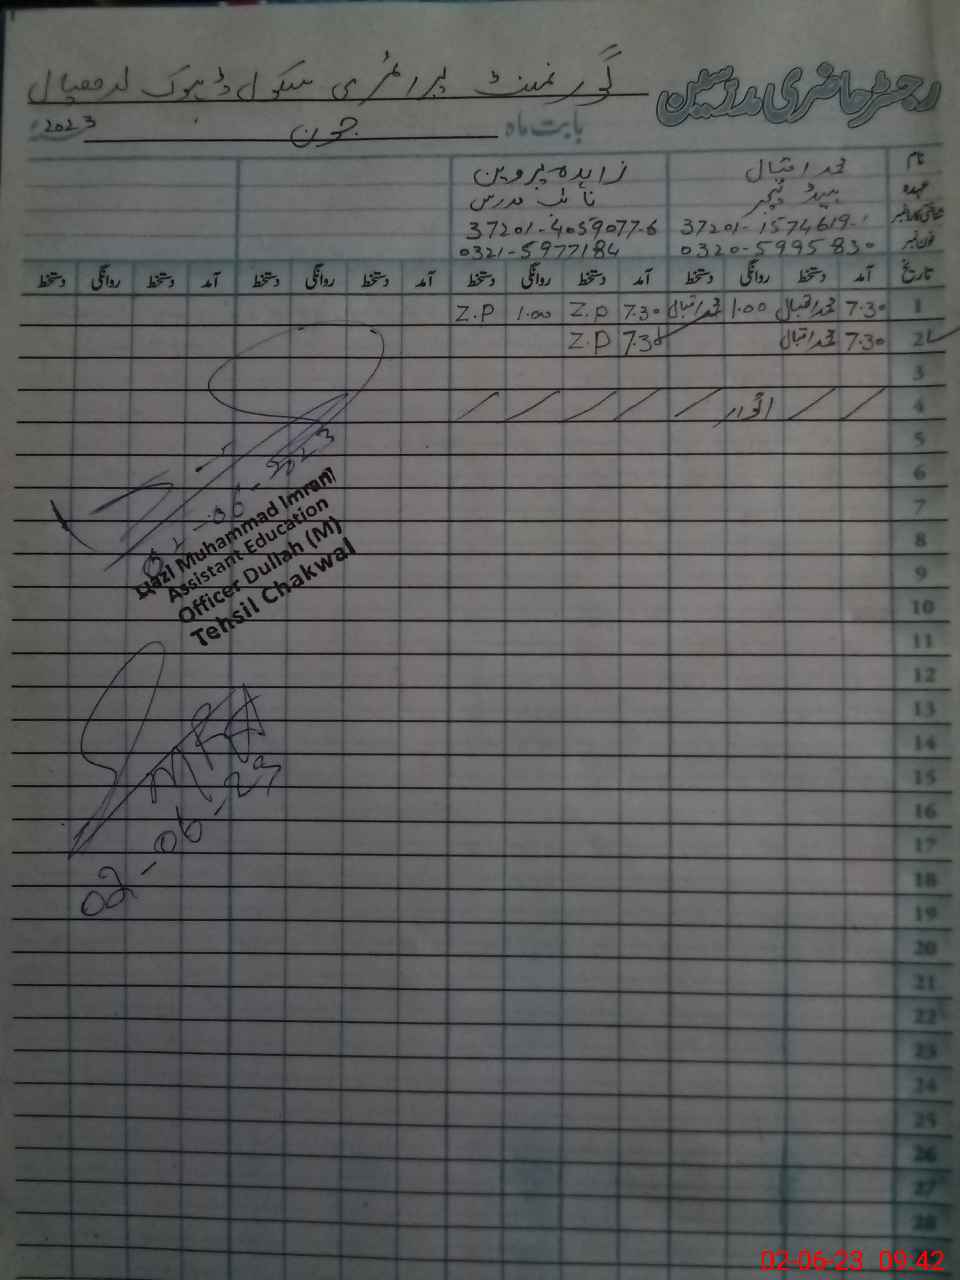 رجسٹر حاضری مدرسین
گورنمنٹ پرائمری سکول ڈھوک
بابت ماہ جون 2023
نام محمد اقبال زاہدہ پروین
عہدہ ہیڈ ٹیچر نائب مدرس
شناختی کارڈ نمبر 37201-1574619-1 37201-4059077-6
فون نمبر 0320-5995830 0321-5977184
تاریخ آمد دستخط روانگی دستخط آمد دستخط روانگی دستخط آمد دستخط روانگی دستخط آمد دستخط روانگی دستخط
1 7.30 محمد اقبال 1.00 محمد اقبال 7.30 Z.P 1.00 Z.P
2 7.30 محمد اقبال 7.30 Z.P
3
4 اتوار
5
6
7
8
9
10
11
12
13
14
15
16
17
18
19
20
21
22
23
24
25
26
27
28
02-06-2023
Qazi Muhammad Imran
Assistant Education
Officer Dullah (M)
Tehsil Chakwal
02-06-23
02-06-23 09:42